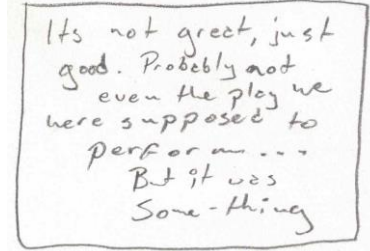 Its not great, just
good. Probably not
even the play we
were supposed to
perform...
But it was
Some-thing